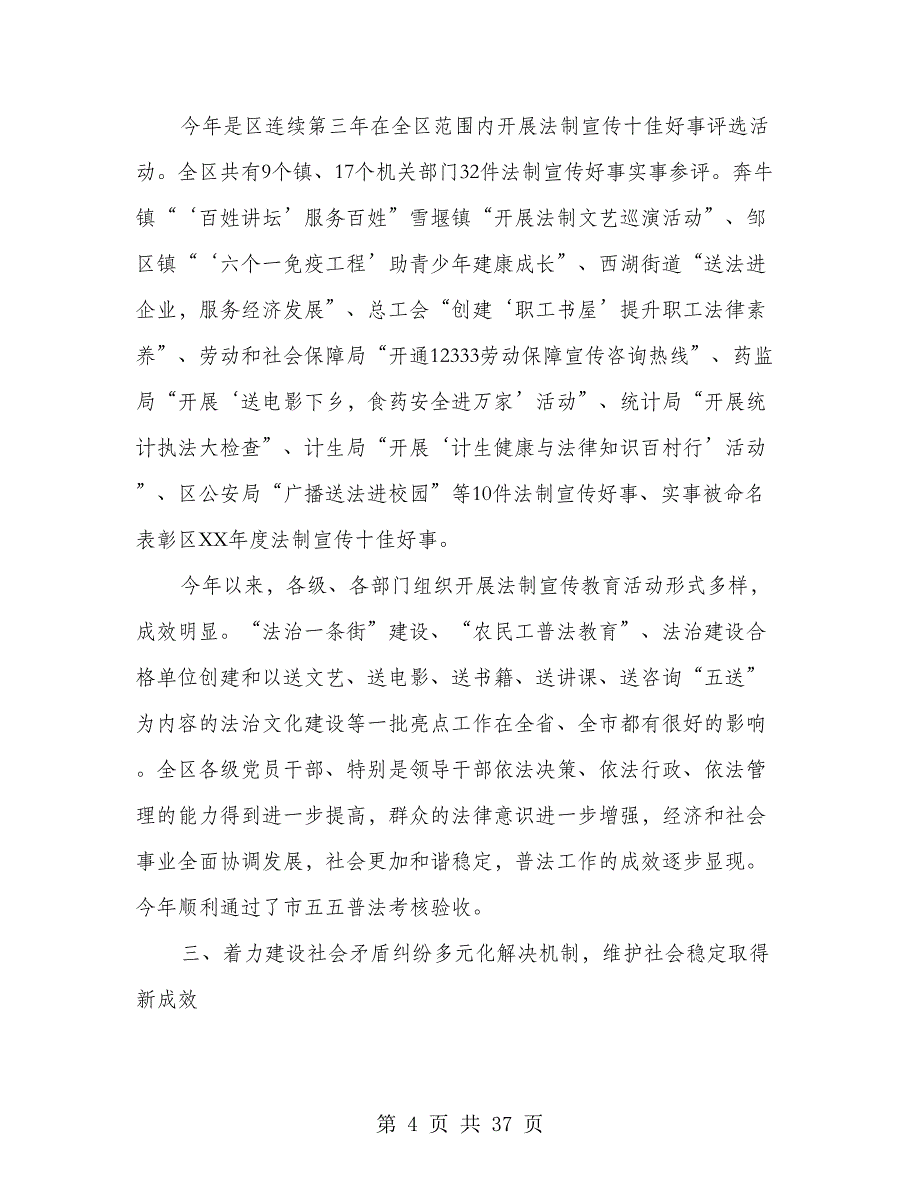 今年是区连续第三年在全区范围内开展法制宣传十佳好事评选活
动。全区共有9个镇、17个机关部门32件法制宣传好事实事参评。奔牛
镇“‘百姓讲坛’服务百姓”雪堰镇“开展法制文艺巡演活动”、邹
区镇“‘六个一免疫工程’助青少年建康成长”、西湖街道“送法进
企业，服务经济发展”、总工会“创建‘职工书屋’提升职工法律素
养”、劳动和社会保障局“开通12333劳动保障宣传咨询热线”、药监
局“开展‘送电影下乡，食药安全进万家’活动”、统计局“开展统
计执法大检查”、计生局“开展‘计生健康与法律知识百村行’活动
”、区公安局“广播送法进校园”等10件法制宣传好事、实事被命名
表彰区XX年度法制宣传十佳好事。
今年以来，各级、各部门组织开展法制宣传教育活动形式多样，
成效明显。“法治一条街”建设、“农民工普法教育”、法治建设合
格单位创建和以送文艺、送电影、送书籍、送讲课、送咨询“五送”
为内容的法治文化建设等一批亮点工作在全省、全市都有很好的影响
。全区各级党员干部、特别是领导干部依法决策、依法行政、依法管
理的能力得到进一步提高，群众的法律意识进一步增强，经济和社会
事业全面协调发展，社会更加和谐稳定，普法工作的成效逐步显现。
今年顺利通过了市五五普法考核验收。
三、着力建设社会矛盾纠纷多元化解决机制，维护社会稳定取得
新成效
第 4 页 共 37 页